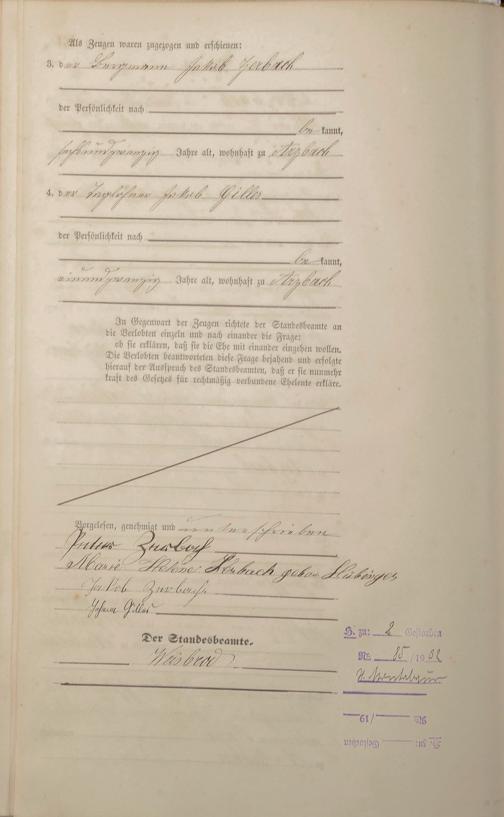 Als Zeugen waren zugezogen und erschienen:
3. der Bergmann Jakob Zerbach
der Persönlichkeit nach
be kannt,
sechsundzwanzig Jahre alt, wohnhaft zu Arzbach
4. der Taglöhner Jakob Gilles
der Persönlichkeit nach
be kannt,
einundzwanzig Jahre alt, wohnhaft zu Arzbach
In Gegenwart der Zeugen richtete der Standesbeamte an
die Verlobten einzeln und nach einander die Frage:
ob sie erklären, daß sie die Ehe mit einander eingehen wollen.
Die Verlobten beantworteten diese Frage bejahend und erfolgte
hierauf der Ausspruch des Standesbeamten, daß er sie nunmehr
kraft des Gesetzes für rechtmäßig verbundene Eheleute erkläre.
Vorgelesen, genehmigt und unterschrieben
Zerbach
Marie Helene Zerbach geborne
Jakob Zerbach
Gilles
Der Standesbeamte.
Weisbrod
H. zu: 2 Gestorben
Nr. 15/1932
St.
H. zu: Gestorben
Nr. /19